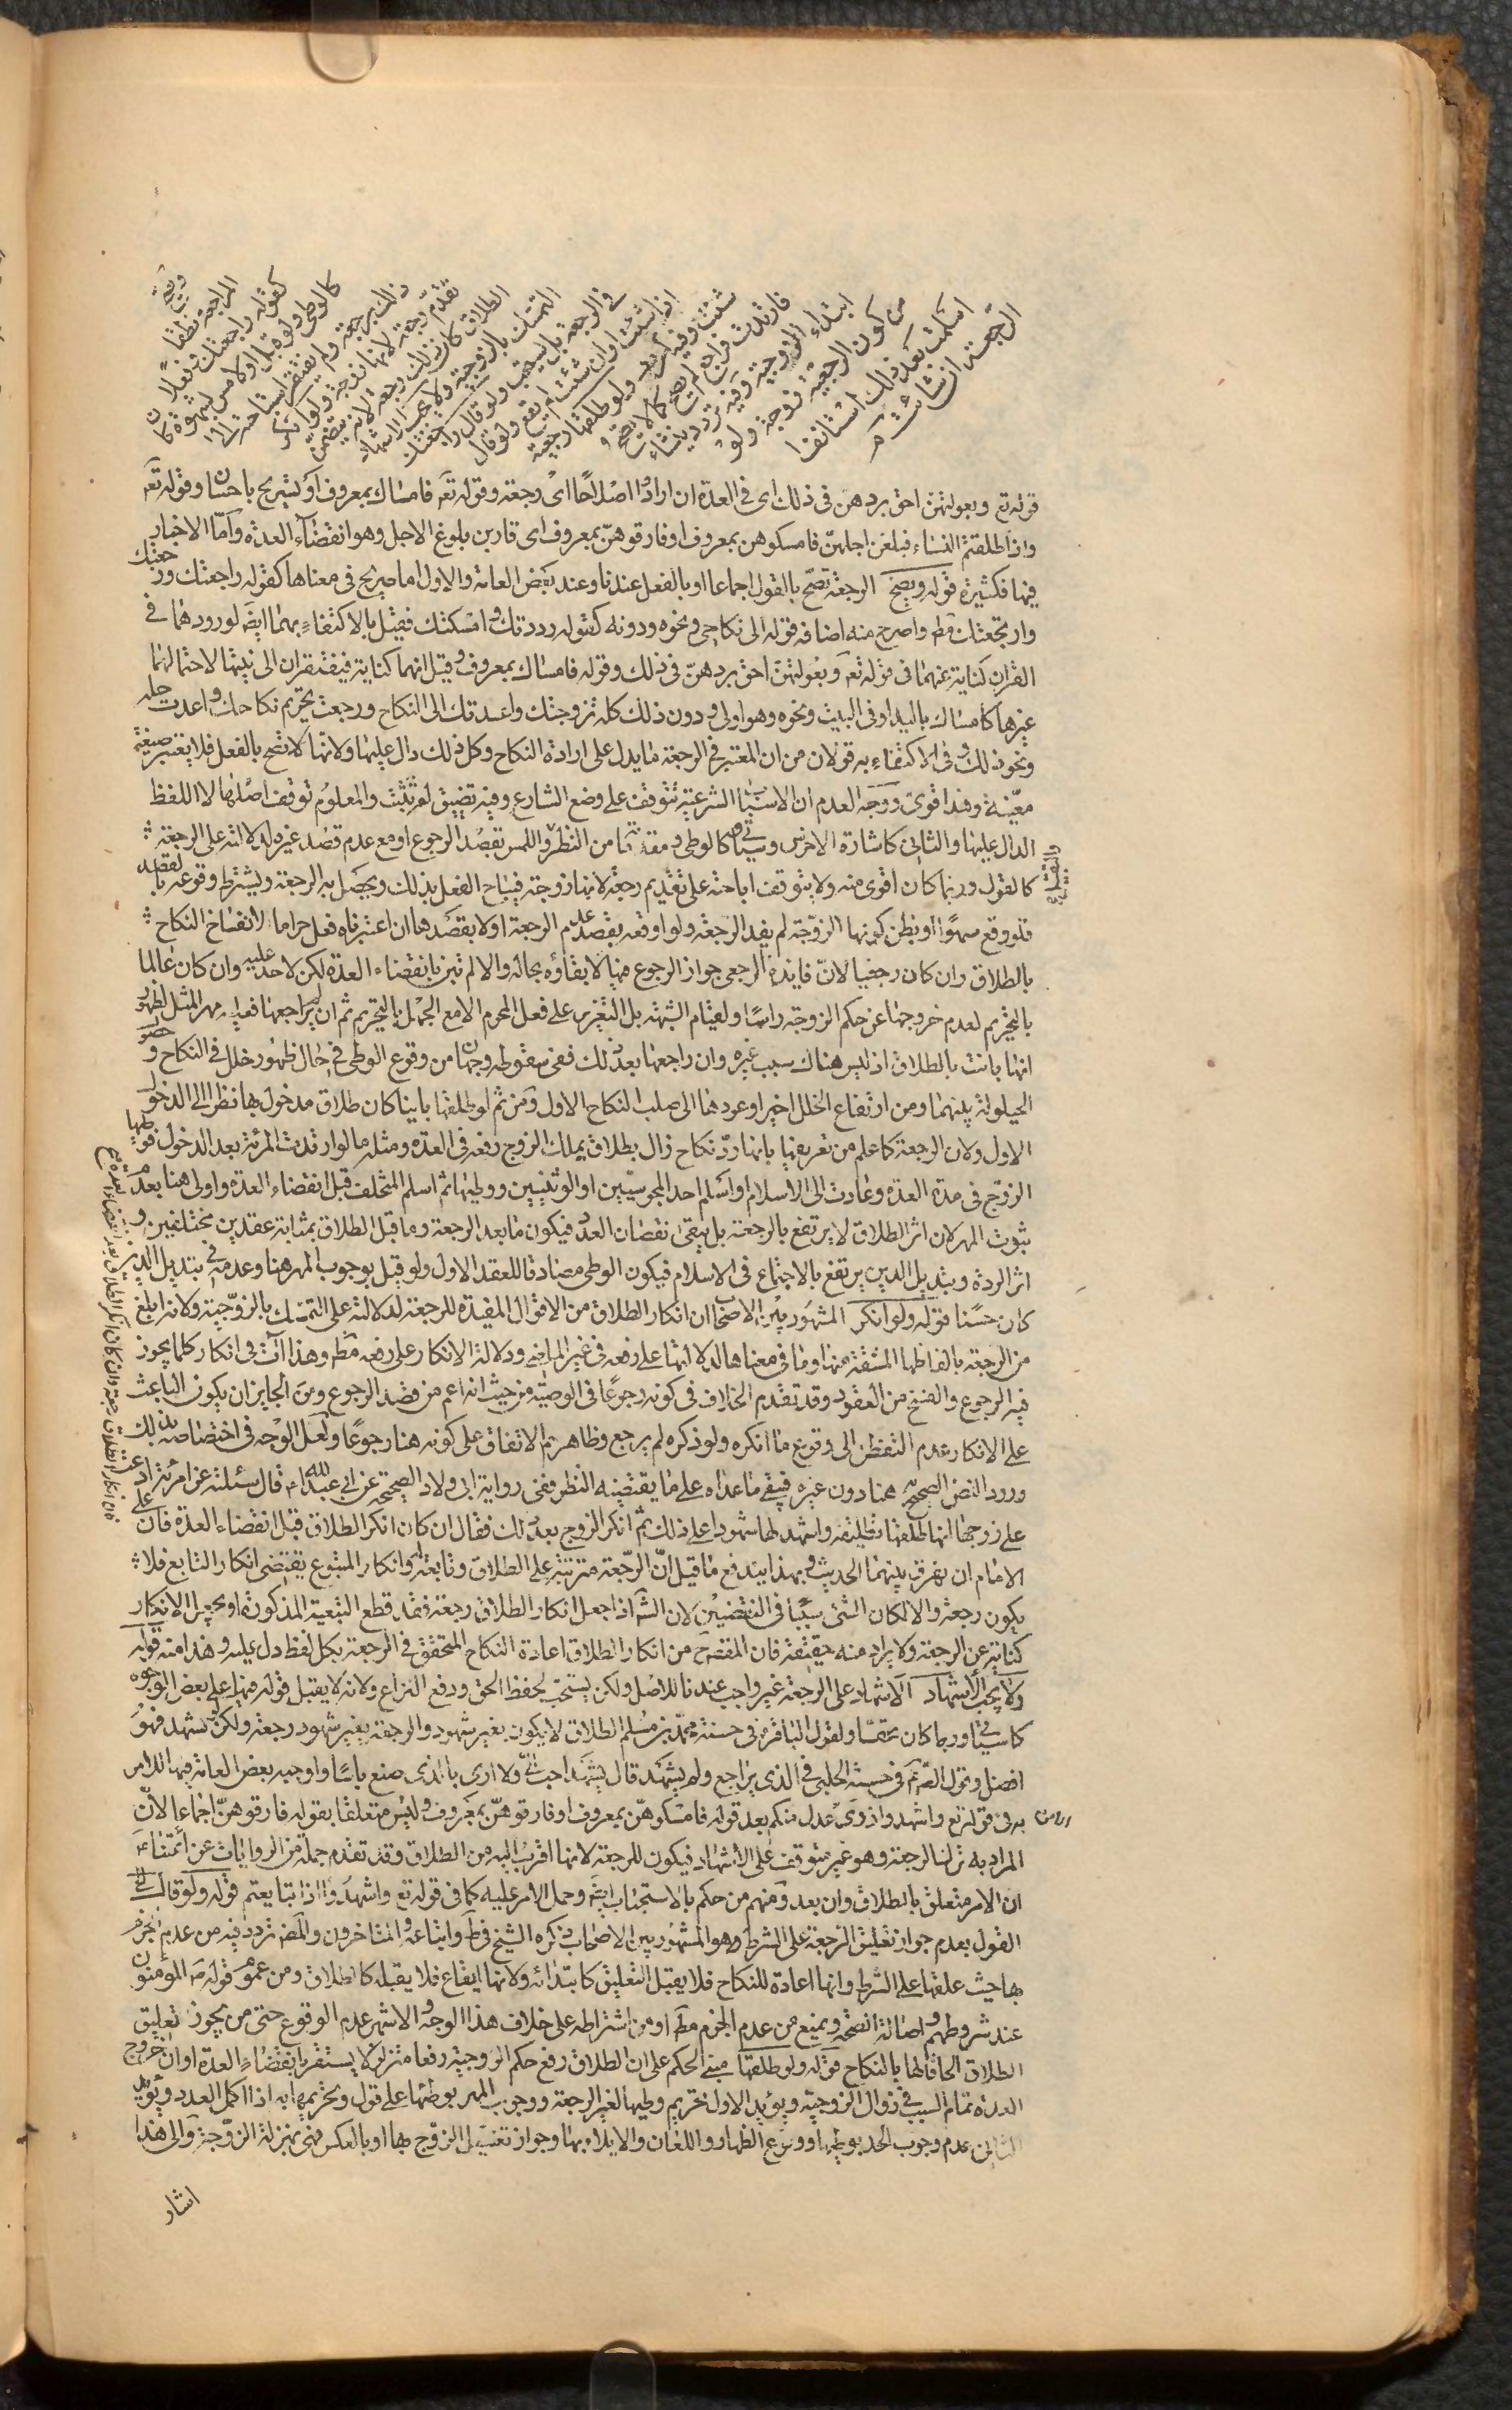 وتصح
المراجعة نطقا
كقوله راجعتك وفعلا
كالوطي ولو قبل او لامس بشهوة كان
ذلك رجعة ولم يفتقر استباحته الى
تقدم رجعة لانها زوجة ولو انكر
الطلاق كان ذلك رجعة لانه يتضمن
التمسك بالزوجية ولا يجب الاشهاد
في الرجعة بل يستحب ولو قال راجعتك
اذا شئت او ان شئت لم يقع ولو قال
شئت وفيه تردد ولو طلقها رجعية
فارتدت فراجع لم يصح كما لا يصح
ابتداء الزوجية وفيه تردد ينشاء
من كون الرجعية زوجة ولو
اسلمت بعد ذلك استانف
الرجعة ان شاء
قوله تع وبعولتهن احق بردهن في ذلك اى في العدة ان ارادوا اصلاحا اى رجعة وقوله تع فامساك بمعروف او تسريح باحسان وقوله تع
واذا طلقتم النساء فبلغن اجلهن فامسكوهن بمعروف او فارقوهن بمعروف اى قاربن بلوغ الاجل وهو انقضاء العدة واما الاخبار
فيها فكثيرة قوله وتصح الرجعة تصح بالقول اجماعا او بالفعل عندنا وعند بعض العامة والاول اما صريح في معناها كقوله راجعتك ورجعتك
وارتجعتك مط واصرح منه اضافة قوله الى نكاحي ونحوه ودونه كقوله رددتك وامسكتك فقيل بالاكتفاء بهما ايضا لورودهما في
القران كناية عنهما في قوله تع وبعولتهن احق بردهن في ذلك وقوله فامساك بمعروف وقيل انهما كناية فيفتقران الى نيتها لاحتمالهما
غيرها كامساك باليد او في البيت ونحوه وهو اولى ودون ذلك كله تزوجتك واعدتك الى النكاح ورجعت تحريم نكاحك واعدت حله
ونحو ذلك وفي الاكتفاء به قولان من ان المعتبر في الرجعة ما يدل على ارادة النكاح وكل ذلك دال عليها ولانها لا تصح بالفعل فلا يعتبر صيغة
معينة وهذا اقوى ووجه العدم ان الاسباب الشرعية تتوقف على وضع الشارع وفيه تضييق لم يثبت والمعلوم توقف اصلها لا اللفظ
الدال عليها والثاني كاشارة الاخرس وسياتي وكالوطي ومقدماته من النظر واللمس بقصد الرجوع او مع عدم قصد غيره لدلالته على الرجعة
كالقول وربما كان اقوى منه ولا يتوقف اباحته على تقديم رجعة لانها زوجته فيباح الفعل بذلك ويحصل به الرجعة ويشترط وقوعه بالقصد
فلو وقع سهوا او بظن كونها الزوجة لم يفد الرجعة ولو اوقعه بقصد عدم الرجعة او لا بقصدها ان اعتبرناه فعل حراما لانفساخ النكاح
بالطلاق وان كان رجعيا لان فايدة الرجعي جواز الرجوع فيها لا بقاؤه بحاله والا لم تبن بانقضاء العدة لكن لا حد عليه وان كان عالما
بالتحريم لعدم خروجها عن حكم الزوجة راسا ولقيام الشبهة بل التعزير على فعل المحرم الا مع الجهل بالتحريم ثم ان لم يراجعها فعليه مهر المثل لظهور
انها بانت بالطلاق اذ ليس هناك سبب غيره وان راجعها بعد ذلك ففي سقوطه وجهان من وقوع الوطي في حال ظهور خلل في النكاح وحصول
الحيلولة بينهما ومن ارتفاع الخلل اخيرا وعودها الى صلب النكاح الاول ومن ثم لو طلقها باينا كان طلاق مدخول بها نظرا الى الدخول
الاول ولان الرجعة كما علم من تعريفها بانها رد نكاح زال بطلاق يملك الزوج رفعه في العدة ومثله ما لو ارتدت المرئة بعد الدخول فوطيها
الزوج في مدة العدة وعادت الى الاسلام او اسلم احد المجوسيين او الوثنيين ووطيها ثم اسلم المتخلف قبل انقضاء العدة واولى هنا بعدم
ثبوت المهر لان اثر الطلاق لا يرتفع بالرجعة بل يبقى نقصان العدد فيكون ما بعد الرجعة وما قبل الطلاق بمثابة عقدين مختلفين و
اثر الردة وتبديل الدين يرتفع بالاجتماع في الاسلام فيكون الوطي مصادفا للعقد الاول ولو قيل بوجوب المهر هنا وعدمه في تبديل الدين
كان حسنا قوله ولو انكر المشهور بين الاصحاب ان انكار الطلاق من الاقوال المفيدة للرجعة لدلالته على التمسك بالزوجية ولانه ابلغ
من الرجعة بالفاظها المشتقة منها وما في معناها لدلالتها على رفعه في غير الماضي ودلالة الانكار على رفعه مط وهذا ات في انكار كلما يجوز
فيه الرجوع والفسخ من العقود وقد تقدم الخلاف في كونه رجوعا في الوصية من حيث انه اعم من قصد الرجوع ومن الجايز ان يكون الباعث
على الانكار عدم التفطن الى وقوع ما انكره ولو ذكره لم يرجع وظاهرهم الاتفاق على كونه هنا رجوعا ولعل الوجه في اختصاصه بذلك
ورود النص الصحيح هنا دون غيره فيبقى ما عداه على ما يقتضيه النظر ففي رواية ابي ولاد الصحيحة عن ابي عبد الله ع قال سئلته عن امرئة ادعت
على زوجها انها طلقها تطليقة واشهد لها شهودا على ذلك ثم انكر الزوج بعد ذلك فقال ان كان انكر الطلاق قبل انقضاء العدة فان
الامام ان يفرق بينهما الحديث وبهذا يندفع ما قيل ان الرجعة مترتبة على الطلاق وتابعة له وانكار المتبوع يقتضى انكار التابع فلا
يكون رجعة والا لكان الشئ سببا في النقيضين لان الش اذا جعل انكار الطلاق رجعة فقد قطع التبعية المذكورة او يجعل الانكار
كناية عن الرجعة ولا يراد منه حقيقته فان المقصود من انكار الطلاق اعادة النكاح المتحقق في الرجعة بكل لفظ دل عليه وهذا منه قوله
ولا يجب الاشهاد الاشهاد على الرجعة غير واجب عندنا للاصل ولكن يستحب لحفظ الحق ودفع النزاع ولانه لا يقبل قوله فيها على بعض الوجوه
كما سياتي وربما كان محقا ولقول الباقر ع في حسنة محمد بن مسلم الطلاق لا يكون بغير شهود والرجعة بغير شهود رجعة ولكن ليشهد فهو
افضل وقول الص ع في حسنة الحلبي في الذى يراجع ولم يشهد قال يشهد احب الى ولا ارى بالذى صنع باسا واوجبه بعض العامة فيها للامر
به في قوله تع واشهدوا ذوى عدل منكم بعد قوله فامسكوهن بمعروف او فارقوهن بمعروف وليس متعلقا بقوله فارقوهن اجماعا لان
المراد به ترك الرجعة وهو غير متوقف على الاشهاد فيكون للرجعة لانها اقرب اليه من الطلاق وقد تقدم جملة من الروايات عن ائمتنا ع
ان الامر متعلق بالطلاق وان بعد ومنهم من حكم بالاستحباب ايض وحمل الامر عليه كما في قوله تع واشهدوا اذا تبايعتم قوله ولو قال
القول بعدم جواز تعليق الرجعة على الشرط وهو المشهور بين الاصحاب ذكره الشيخ في ط واتباعه والمتاخرون والمص تردد فيه من عدم الجزم
بها حيث علقها على الشرط وانها اعادة للنكاح فلا يقبل التعليق كابتدائه ولانها ايقاع فلا يقبله كالطلاق ومن عموم قوله ص المؤمنون
عند شروطهم واصالة الصحة ويمنع من عدم الجزم مط او من اشتراطه على خلاف هذا الوجه والاشهر عدم الوقوع حتى من يجوز تعليق
الطلاق الحاقا لها بالنكاح قوله ولو طلقها مبنى الحكم على ان الطلاق رفع حكم الزوجية رفعا متزلزلا يستقر بانقضاء العدة او ان خروج
العدة تمام السبب في زوال الزوجية ويؤيد الاول تحريم وطيها لغير الرجعة ووجوب المهر بوطئها على قول وتحريمها به اذا اكمل العدد ويؤيد
الثاني عدم وجوب الحد بوطيها ووقوع الظهار واللعان والايلاء بها وجواز تغسيل الزوج لها او بالعكس فهي بمنزلة الزوجة والى هذا
اشار